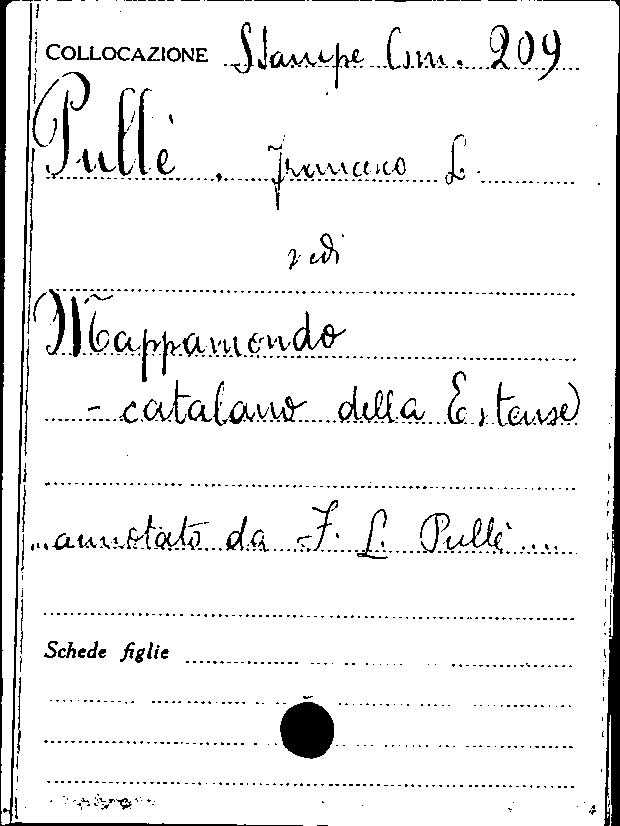 COLLOCAZIONE Stampe Com. 209
Pullè, Francesco L.
vedi
Mappamondo
- catalano della Estense
...annotato da F. L. Pullè....
Schede figlie